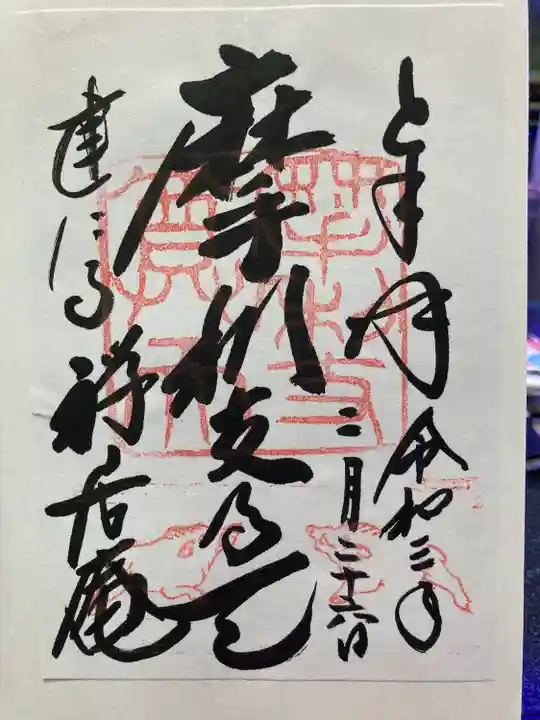 奉拝
令和三年
二月二十六日
摩利支尊天
建仁寺 禅居庵